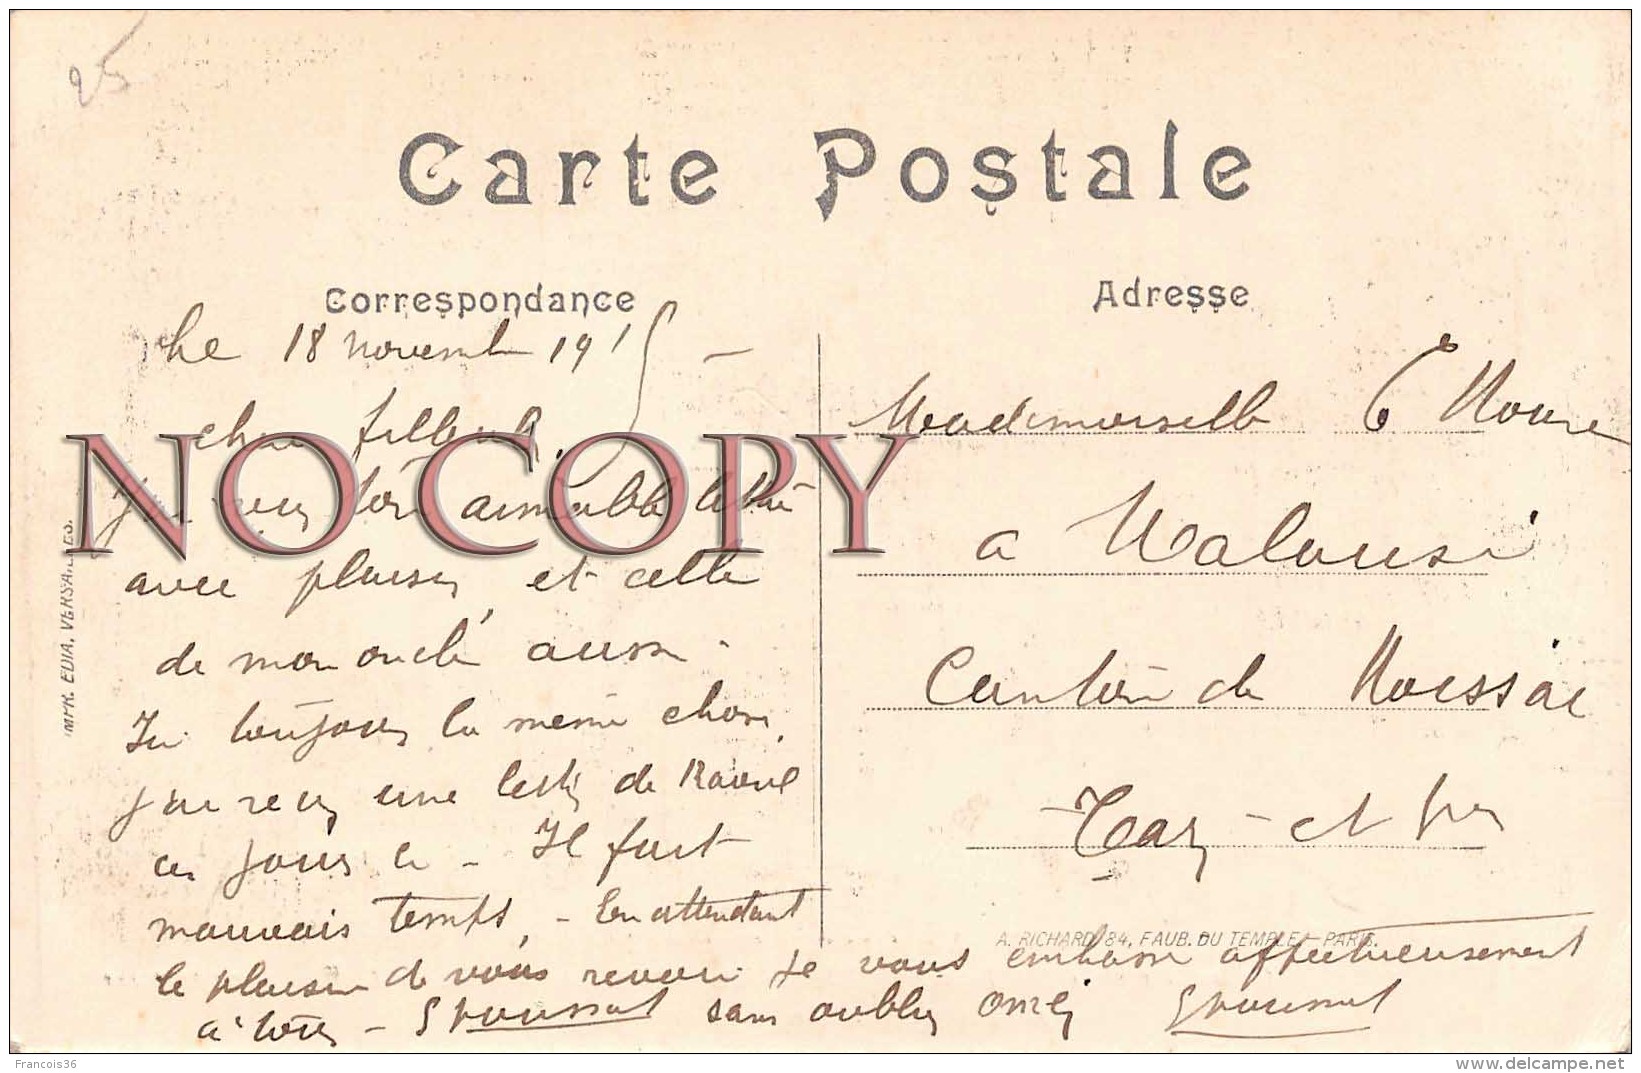 25
Carte Postale
Correspondance
Adresse
Le 18 novembre 1915 -
chère filleule,
NO COPY
J'ai reçu ton aimable lettre
avec plaisir, et celle
de mon oncle aussi.
toujours la même chose,
j'ai reçu une lettre de Raoul
ces jours ci - Il fait
mauvais temps, - En attendant
le plaisir de vous revoir je vous embrasse affectueusement
à tous - sans oublier
Mademoiselle
a Malausi
Canton de Moissac
Tarn-et-
A. RICHARD, 84, FAUB. DU TEMPLE, PARIS.
IMPR. EDIA, VERSAILLES.
Francois36
www.delcampe.net